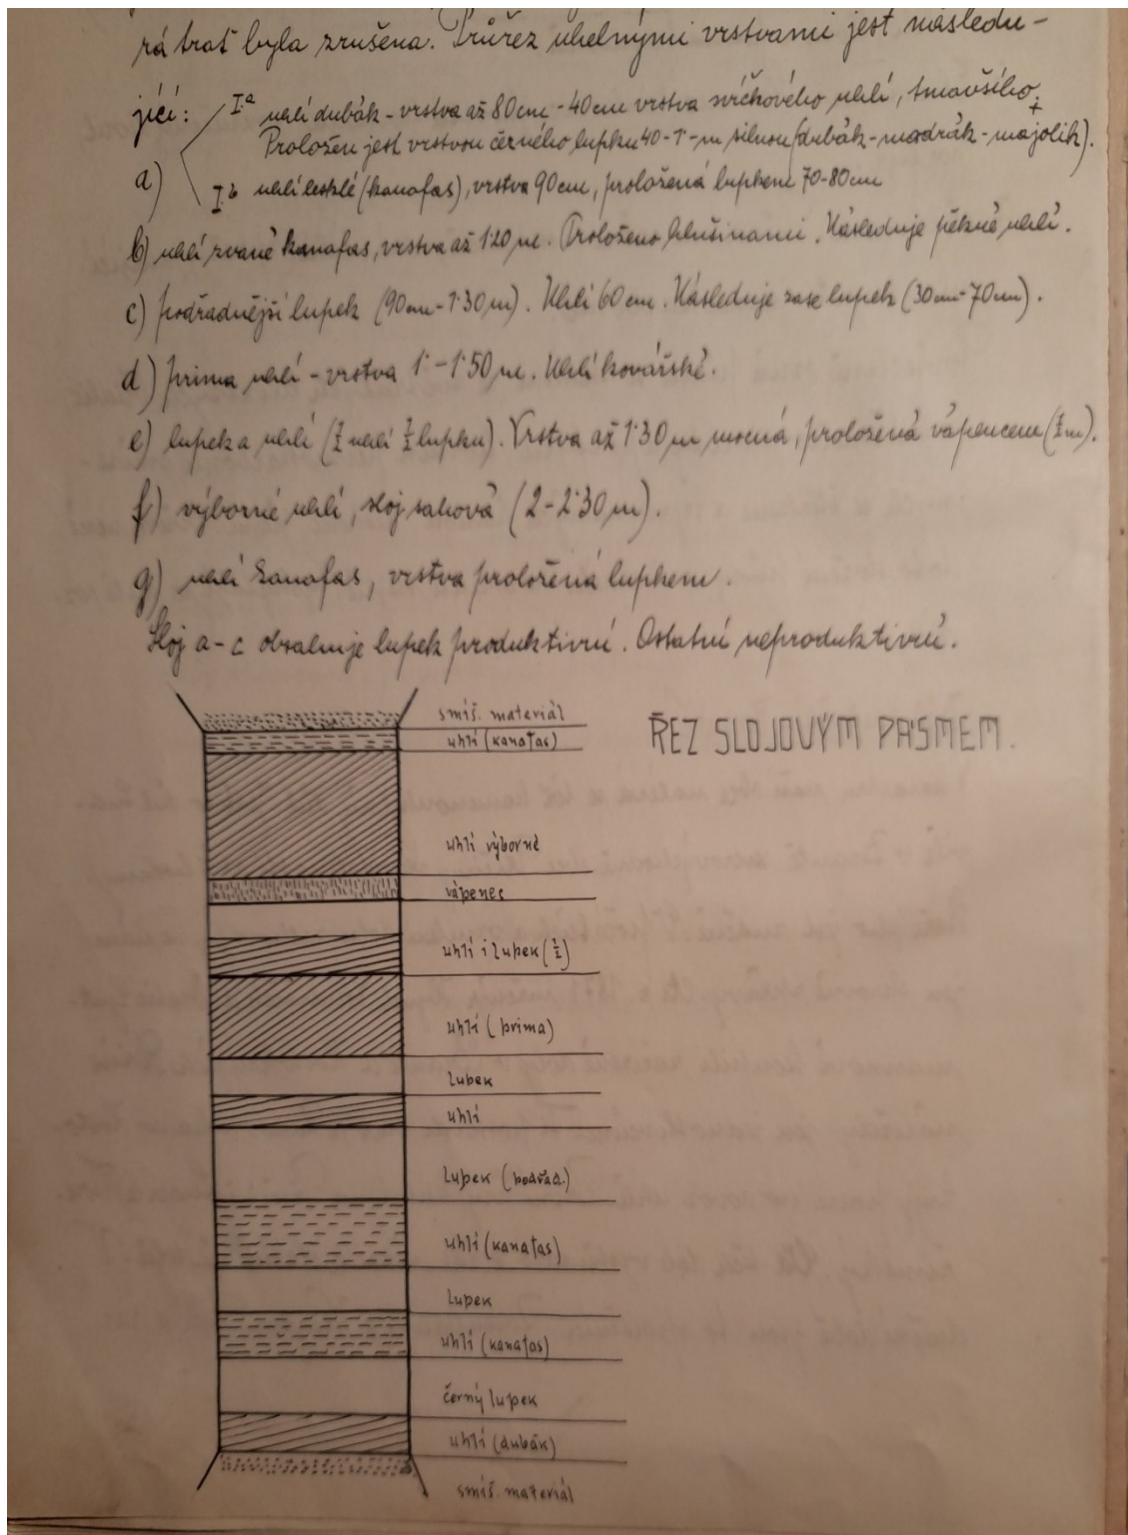 rá trať byla zrušena. Průřez uhelnými vrstvami jest následu-
jící: I.a uhlí dubák - vrstva až 80cm - 40cm vrstva svíčkového uhlí, tmavšího. +
Proložen jest vrstvou černého lupku 40 - 1·-m silnou (dubák - modrák - majolik).
a) I.b uhlí lesklé (kanafas), vrstva 90cm, proložená lupkem 70-80cm
b) uhlí zvané kanafas, vrstva až 1·20 m. Proloženo hlušinami. Následuje pěkné uhlí.
c) podřadnější lupek (90cm - 1·30 m). Uhlí 60 cm. Následuje zase lupek (30cm - 70cm).
d) prima uhlí - vrstva 1· - 1·50 m. Uhlí kovářské.
e) lupek a uhlí (½ uhlí ½ lupku). Vrstva až 1·30 m mocná, proložená vápencem (½ m).
f) výborné uhlí, sloj sahová (2 - 2·30 m).
g) uhlí kanafas, vrstva proložená lupkem.
Sloj a - c obsahuje lupek produktivní. Ostatní neproduktivní.
smíš. materiál
ŘEZ SLOJOVÝM PÁSMEM.
uhlí (kanafas)
uhlí výborné
vápenec
uhlí i lupek (½)
uhlí (prima)
lupek
uhlí
lupek (podřad.)
uhlí (kanafas)
lupek
uhlí (kanafas)
černý lupek
uhlí (dubák)
smíš. materiál